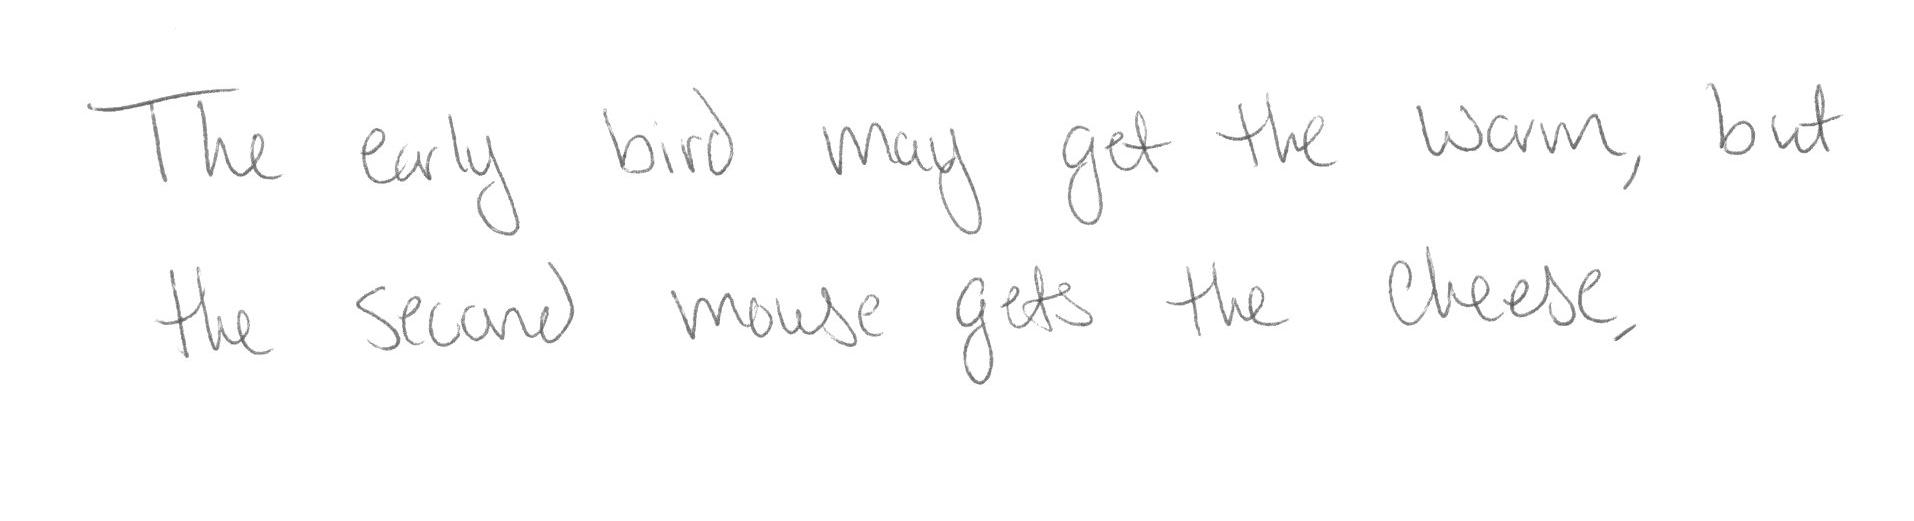 The early bird may get the warm, but
the second mouse gets the cheese,